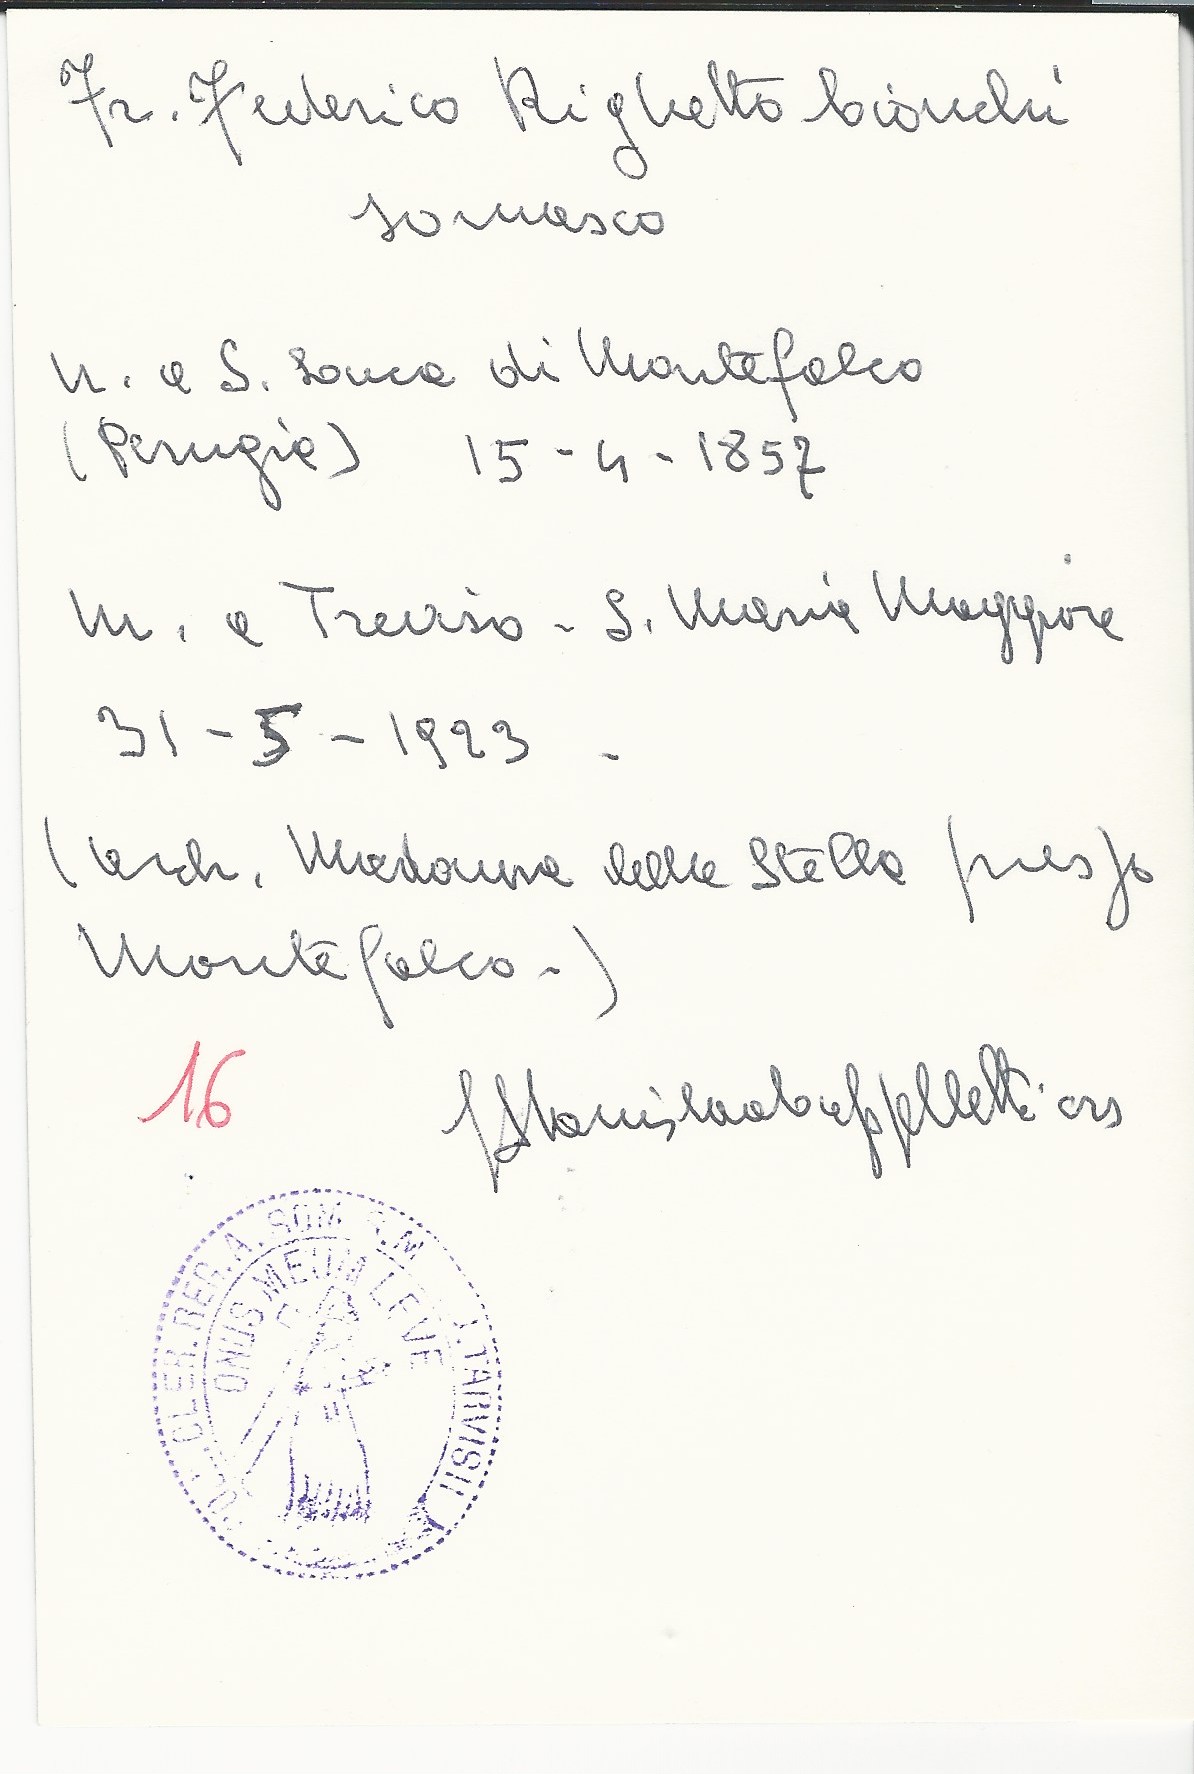 Fr. Federico Righetto bianchi
somasco
n. a S. Louca di Montefalco
(Perugia) 15-4-1857
m. a Treviso - S. Maria Maggiore
31-5-1923.
(arch. Madonna della Stella presso
Montefalco-)
16
Stanislao Cappelletti crs
CLER. REG. A. SOM. S. M. TARVISII
ONUS MEUM LEVE